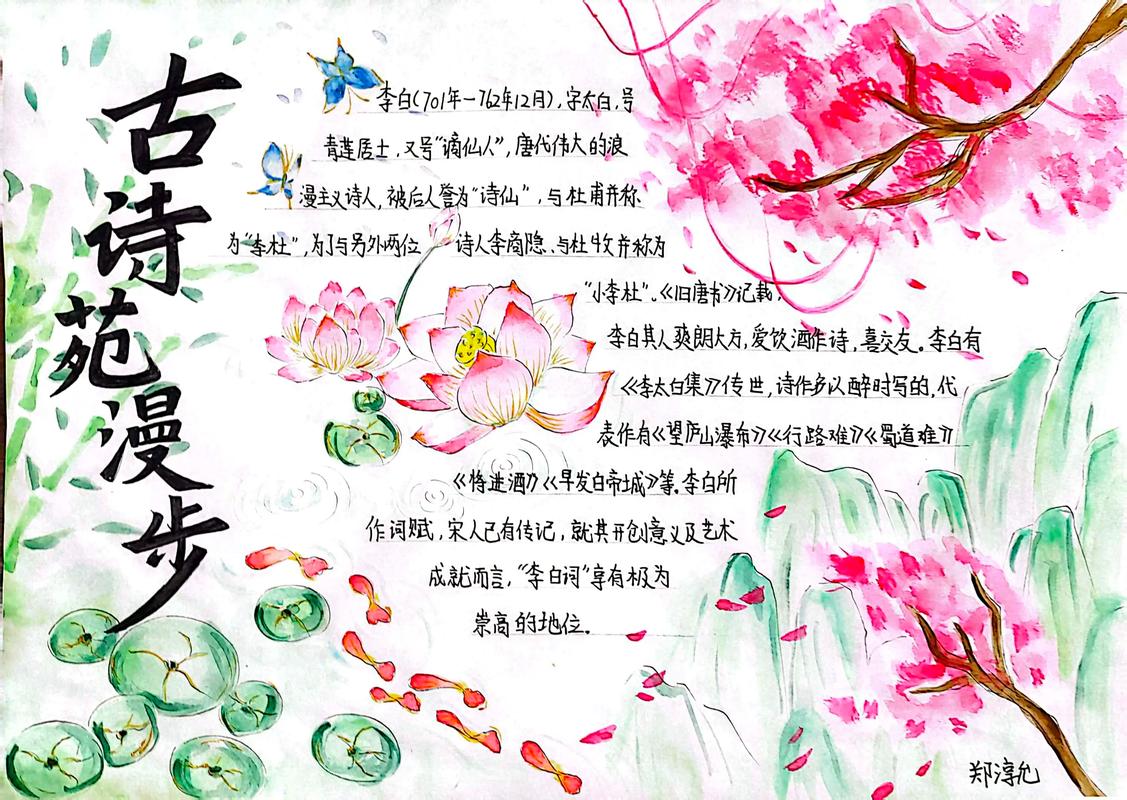 古诗苑漫步
李白(701年一762年12月),字太白,号
青莲居士,又号“谪仙人”,唐代伟大的浪
漫主义诗人,被后人誉为“诗仙”,与杜甫并称
为“李杜”,为了与另外两位诗人李商隐、与杜牧并称为
“小李杜”。《旧唐书》记载,
李白其人爽朗大方,爱饮酒作诗,喜交友。李白有
《李太白集》传世,诗作多以醉时写的,代
表作有《望庐山瀑布》《行路难》《蜀道难》
《将进酒》《早发白帝城》等。李白所
作词赋,宋人已有传记,就其开创意义及艺术
成就而言,“李白词”享有极为
崇高的地位。
郑淳允